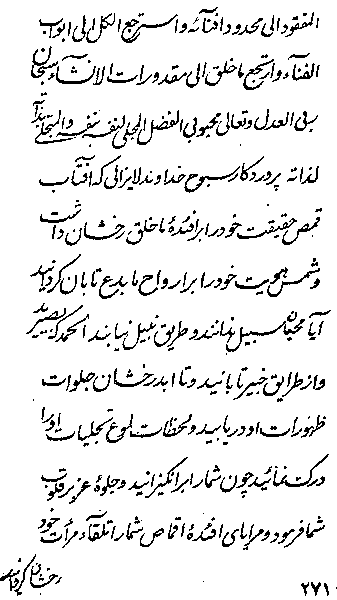 المفقود الی محدود افنآئه و استرجع الکل الی ابواب
الفنآء و ارتجع ما خلق الی مقدورات الانشآء سبحان
ربی العدل و تعالی محبوبی الفضل المجلی لنفسه بنفسه و المتجلی بذاته
لذاته پروردگار سبوح خداوند لایزالی که آفتاب
قمص حقیقت خود را بر افئدهٔ ما خلق رخشان داشت
و شمس هویت خود را بر ارواح ما بدع تابان گردانید
آیا محبان سبیل ندانند و طریق نبیل نیابند الحمد که بصیرید
و از طرایق خبیر تا بائید و تا ابد رخشان جلوات
ظهورات او دریابید و لحظات بلوغ تجلیات او را
درک نمائید چون شما را برانگیزانید و جلوهٔ عزیز قلوب
شما فرمود و مرایای افئدهٔ اقماص شما را تلقآء مرآت خود
رخشان گردانید
۲۷۱